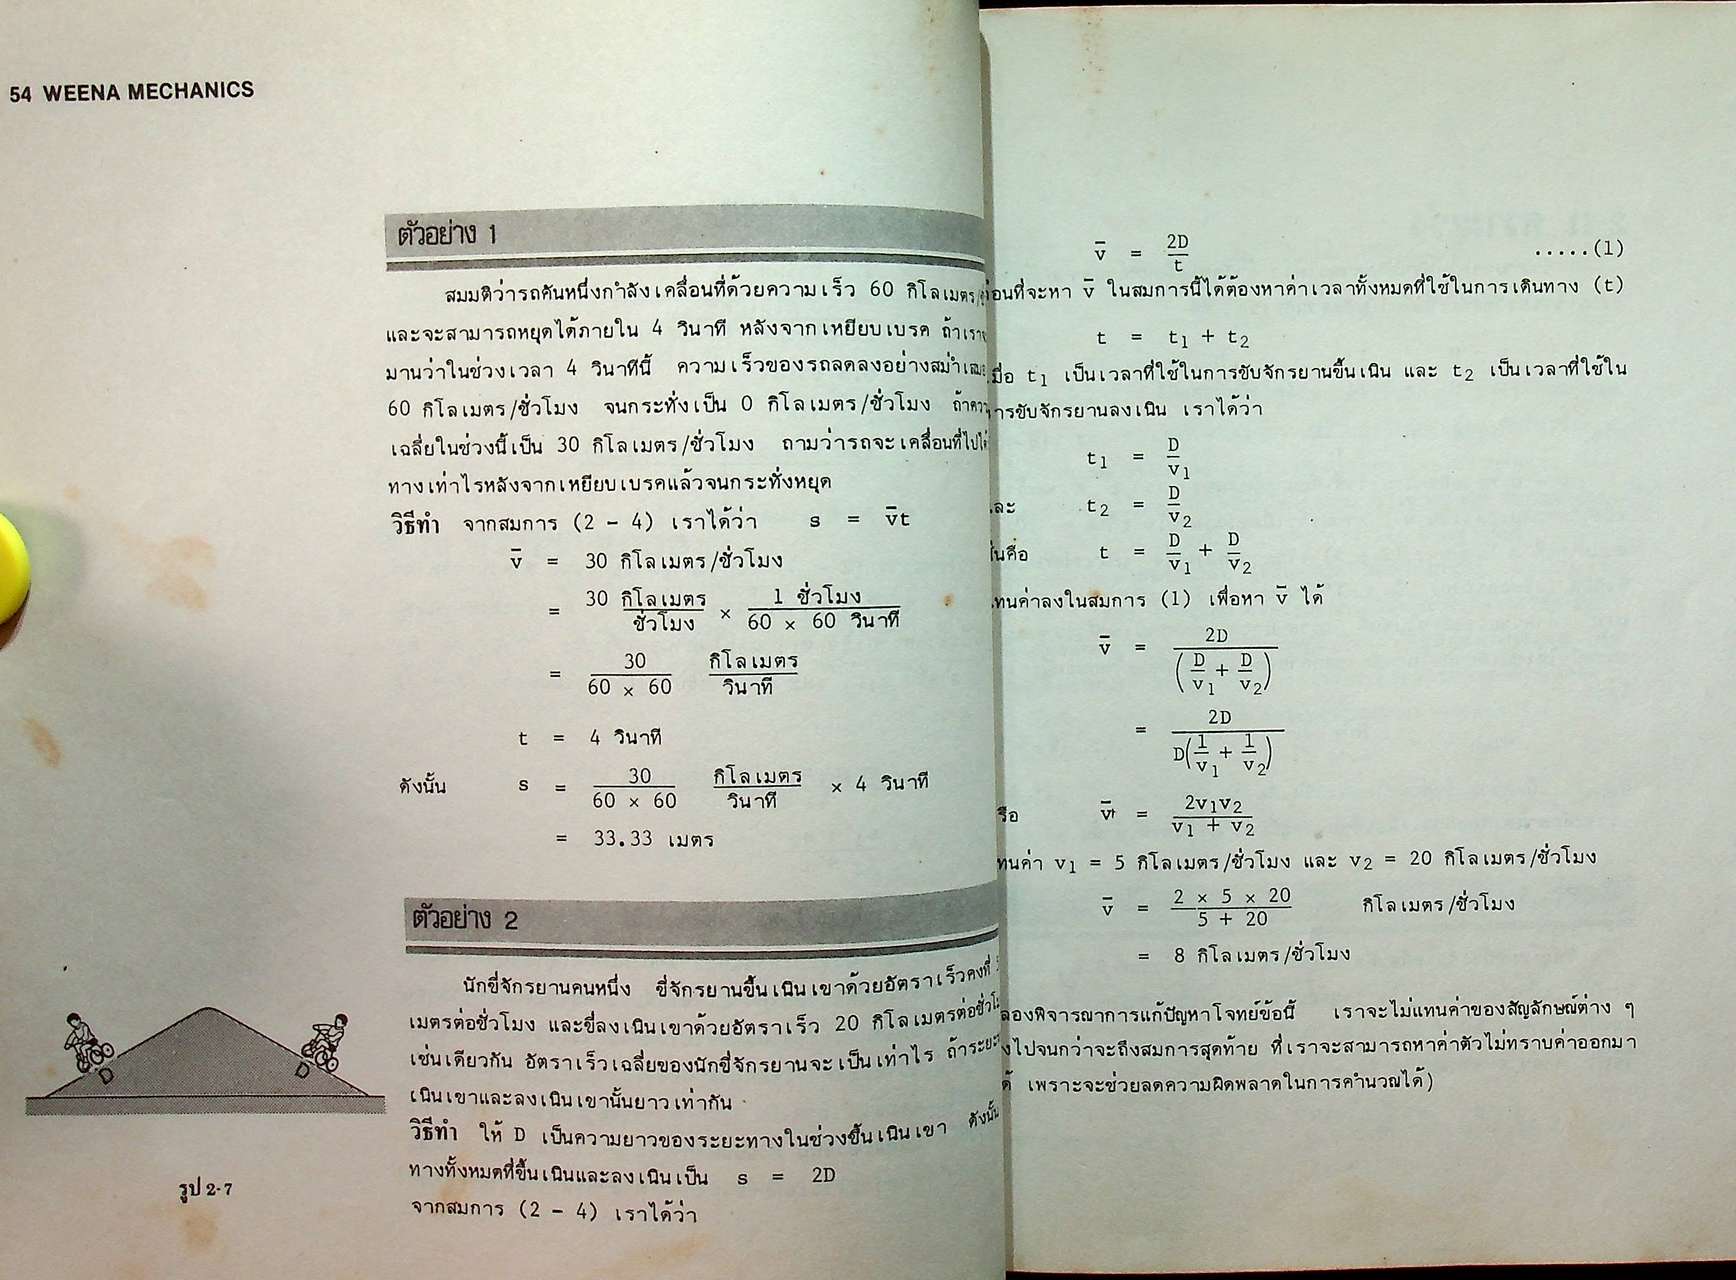 54 WEENA MECHANICS
ตัวอย่าง 1
สมมติว่ารถคันหนึ่งกำลังเคลื่อนที่ด้วยความเร็ว 60 กิโลเมตร/
และจะสามารถหยุดได้ภายใน 4 วินาที หลังจากเหยียบเบรค ถ้าเรา
มานว่าในช่วงเวลา 4 วินาทีนี้ ความเร็วของรถลดลงอย่างสม่ำเสมอ
60 กิโลเมตร/ชั่วโมง จนกระทั่งเป็น 0 กิโลเมตร/ชั่วโมง ถ้าคว
เฉลี่ยในช่วงนี้เป็น 30 กิโลเมตร/ชั่วโมง ถามว่ารถจะเคลื่อนที่ไปได้
ทางเท่าไรหลังจากเหยียบเบรคแล้วจนกระทั่งหยุด
วิธีทำ จากสมการ (2 - 4) เราได้ว่า s = v̄t
v̄ = 30 กิโลเมตร/ชั่วโมง
= 30 กิโลเมตร/ชั่วโมง × 1 ชั่วโมง/60 × 60 วินาที
= 30/60 × 60 กิโลเมตร/วินาที
t = 4 วินาที
ดังนั้น s = 30/60 × 60 กิโลเมตร/วินาที × 4 วินาที
= 33.33 เมตร
ตัวอย่าง 2
นักขี่จักรยานคนหนึ่ง ขี่จักรยานขึ้นเนินเขาด้วยอัตราเร็วคงที่
เมตรต่อชั่วโมง และขี่ลงเนินเขาด้วยอัตราเร็ว 20 กิโลเมตรต่อชั่วโม
เช่นเดียวกัน อัตราเร็วเฉลี่ยของนักขี่จักรยานจะเป็นเท่าไร ถ้าระยะ
เนินเขาและลงเนินเขานั้นยาวเท่ากัน
วิธีทำ ให้ D เป็นความยาวของระยะทางในช่วงขึ้นเนินเขา ดังนั้น
ทางทั้งหมดที่ขึ้นเนินและลงเนินเป็น s = 2D
จากสมการ (2 - 4) เราได้ว่า
D D
รูป 2-7
v̄ = 2D/t .....(1)
่อนที่จะหา v̄ ในสมการนี้ได้ต้องหาค่าเวลาทั้งหมดที่ใช้ในการเดินทาง (t)
t = t₁ + t₂
มื่อ t₁ เป็นเวลาที่ใช้ในการขับจักรยานขึ้นเนิน และ t₂ เป็นเวลาที่ใช้ใน
ารขับจักรยานลงเนิน เราได้ว่า
t₁ = D/v₁
ละ t₂ = D/v₂
นคือ t = D/v₁ + D/v₂
ทนค่าลงในสมการ (1) เพื่อหา v̄ ได้
v̄ = 2D/(D/v₁ + D/v₂)
= 2D/D(1/v₁ + 1/v₂)
รือ v̄ = 2v₁v₂/v₁ + v₂
ทนค่า v₁ = 5 กิโลเมตร/ชั่วโมง และ v₂ = 20 กิโลเมตร/ชั่วโมง
v̄ = 2 × 5 × 20/5 + 20 กิโลเมตร/ชั่วโมง
= 8 กิโลเมตร/ชั่วโมง
ลองพิจารณาการแก้ปัญหาโจทย์ข้อนี้ เราจะไม่แทนค่าของสัญลักษณ์ต่าง ๆ
งไปจนกว่าจะถึงสมการสุดท้าย ที่เราจะสามารถหาค่าตัวไม่ทราบค่าออกมา
ด้ เพราะจะช่วยลดความผิดพลาดในการคำนวณได้)